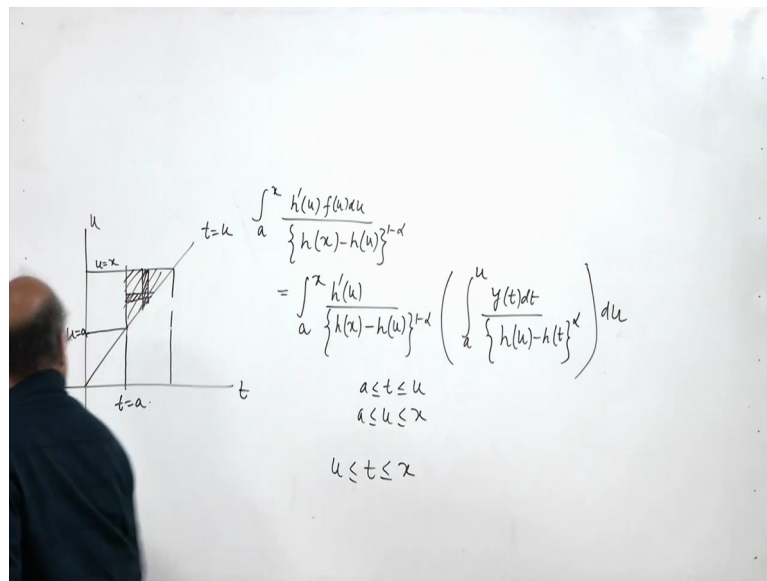 u
t=u
u=x
u=a
t=a.
t
∫_a^x h'(u) f(u)du / {h(x)-h(u)}^{1-α}
= ∫_a^x h'(u) / {h(x)-h(u)}^{1-α} ( ∫_a^u y(t)dt / {h(u)-h(t}^α ) du
a≤t≤u
a≤u≤x
u≤t≤x